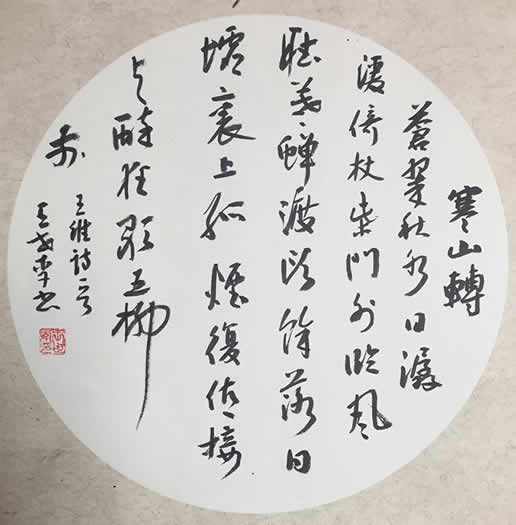 寒山轉
蒼翠秋水日潺
湲倚杖柴門外臨風
聽暮蟬渡頭餘落日
墟裏上孤煙復值接
与醉狂歌五柳
前
王維詩一首
王书